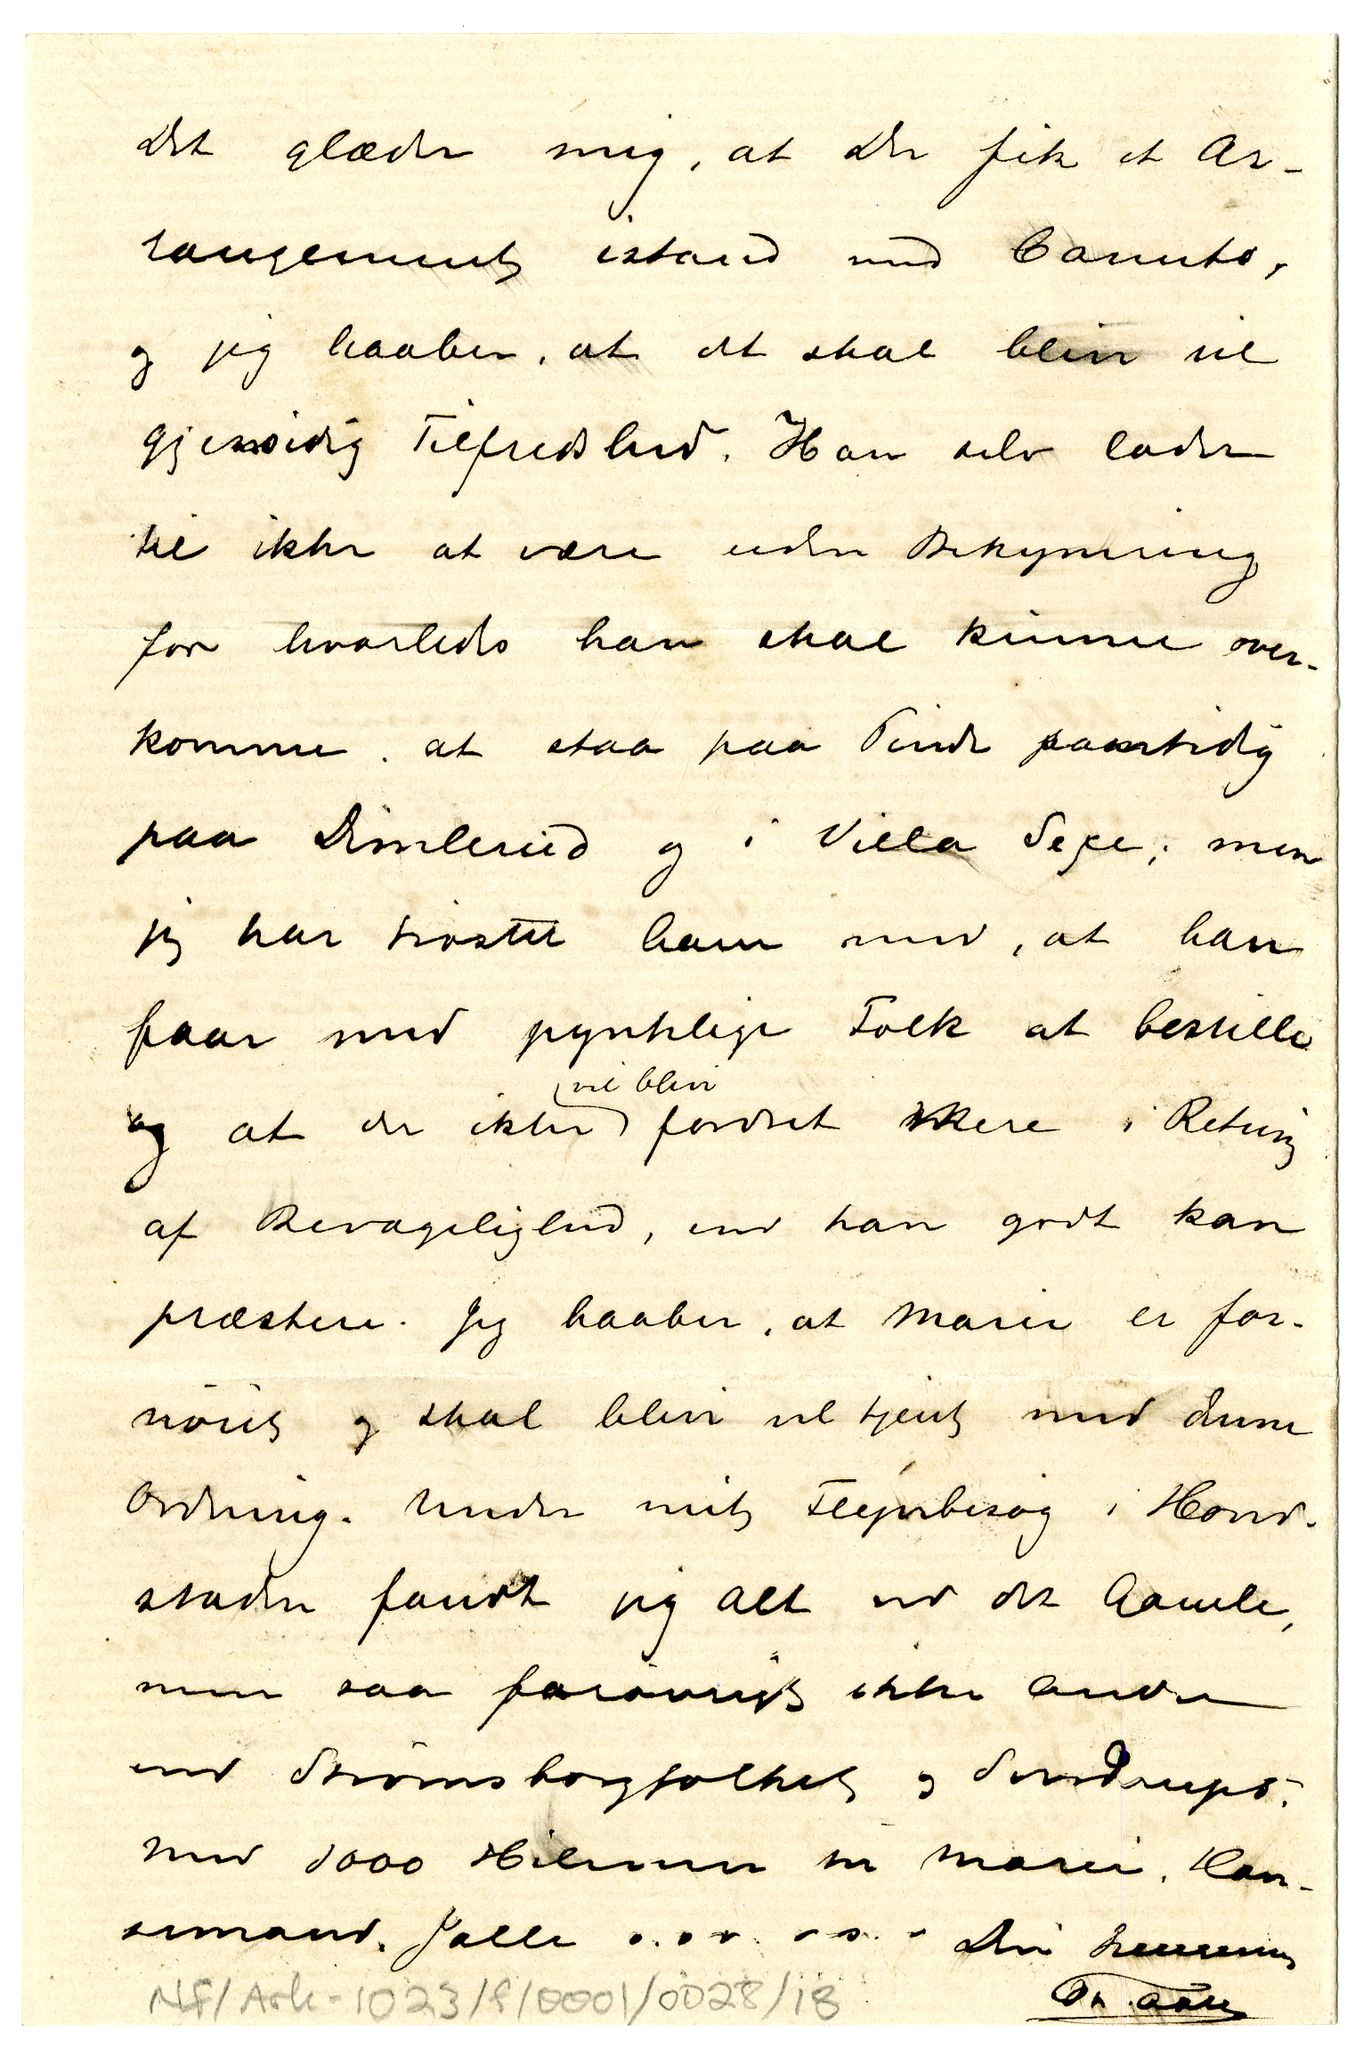 Det glæder mig, at Du fik et Ar-
rangement istand med Canuto,
og jeg haaber, at det skal blive til
gjensidig Tilfredshed. Han selv lader
til ikke at være uden Bekymring
for hvorledes han skal kunne over-
komme at staa paa Pinde samtidig
paa Dimlerud og i Villa Sexe; men
jeg har trøstet ham med, at han
faar med pynklige Folk at bestille
og at der ikke vil blive fordret mere i Retning
af Bevægelighed, end han godt kan
præstere. Jeg haaber, at Marie er for-
nøiet og skal blive vel tjent med denne
Ordning. Under mit Flyvebesøg i Hoved-
staden fandt jeg Alt ved det Gamle,
men saa forøvrigt ikke Andre
end Strømsborgfolket og Sendrups.
Med 1000 Hilsener til Marie,
Jalle . . . . Din hengivne
NF/Ark-1023/f/0001/0028/18